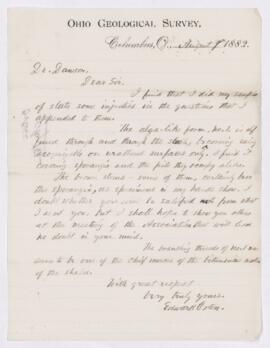 OHIO GEOLOGICAL SURVEY,
Columbus, O., August 7 1882.
Dr. Dawson,
Dear Sir,
I find that I did my samples
of slate some injustice in the questions that I
appended to them.
The alga-like form, which is all
found through and through the slate,
on weathered surfaces only, I find is
sporangia and the pits they
The brown stems - some of them, certainly bear
the sporangia, as specimens in my hands show. I
doubt whether you will be satisfied from what
I sent you, but I shall hope to show you others
at the meeting of the Association that will leave
no doubt in your mind.
The branching threads of
seem to be one of the chief sources of the bituminous matter
of the shales.
With great respect
Very truly yours,
Edward Orton